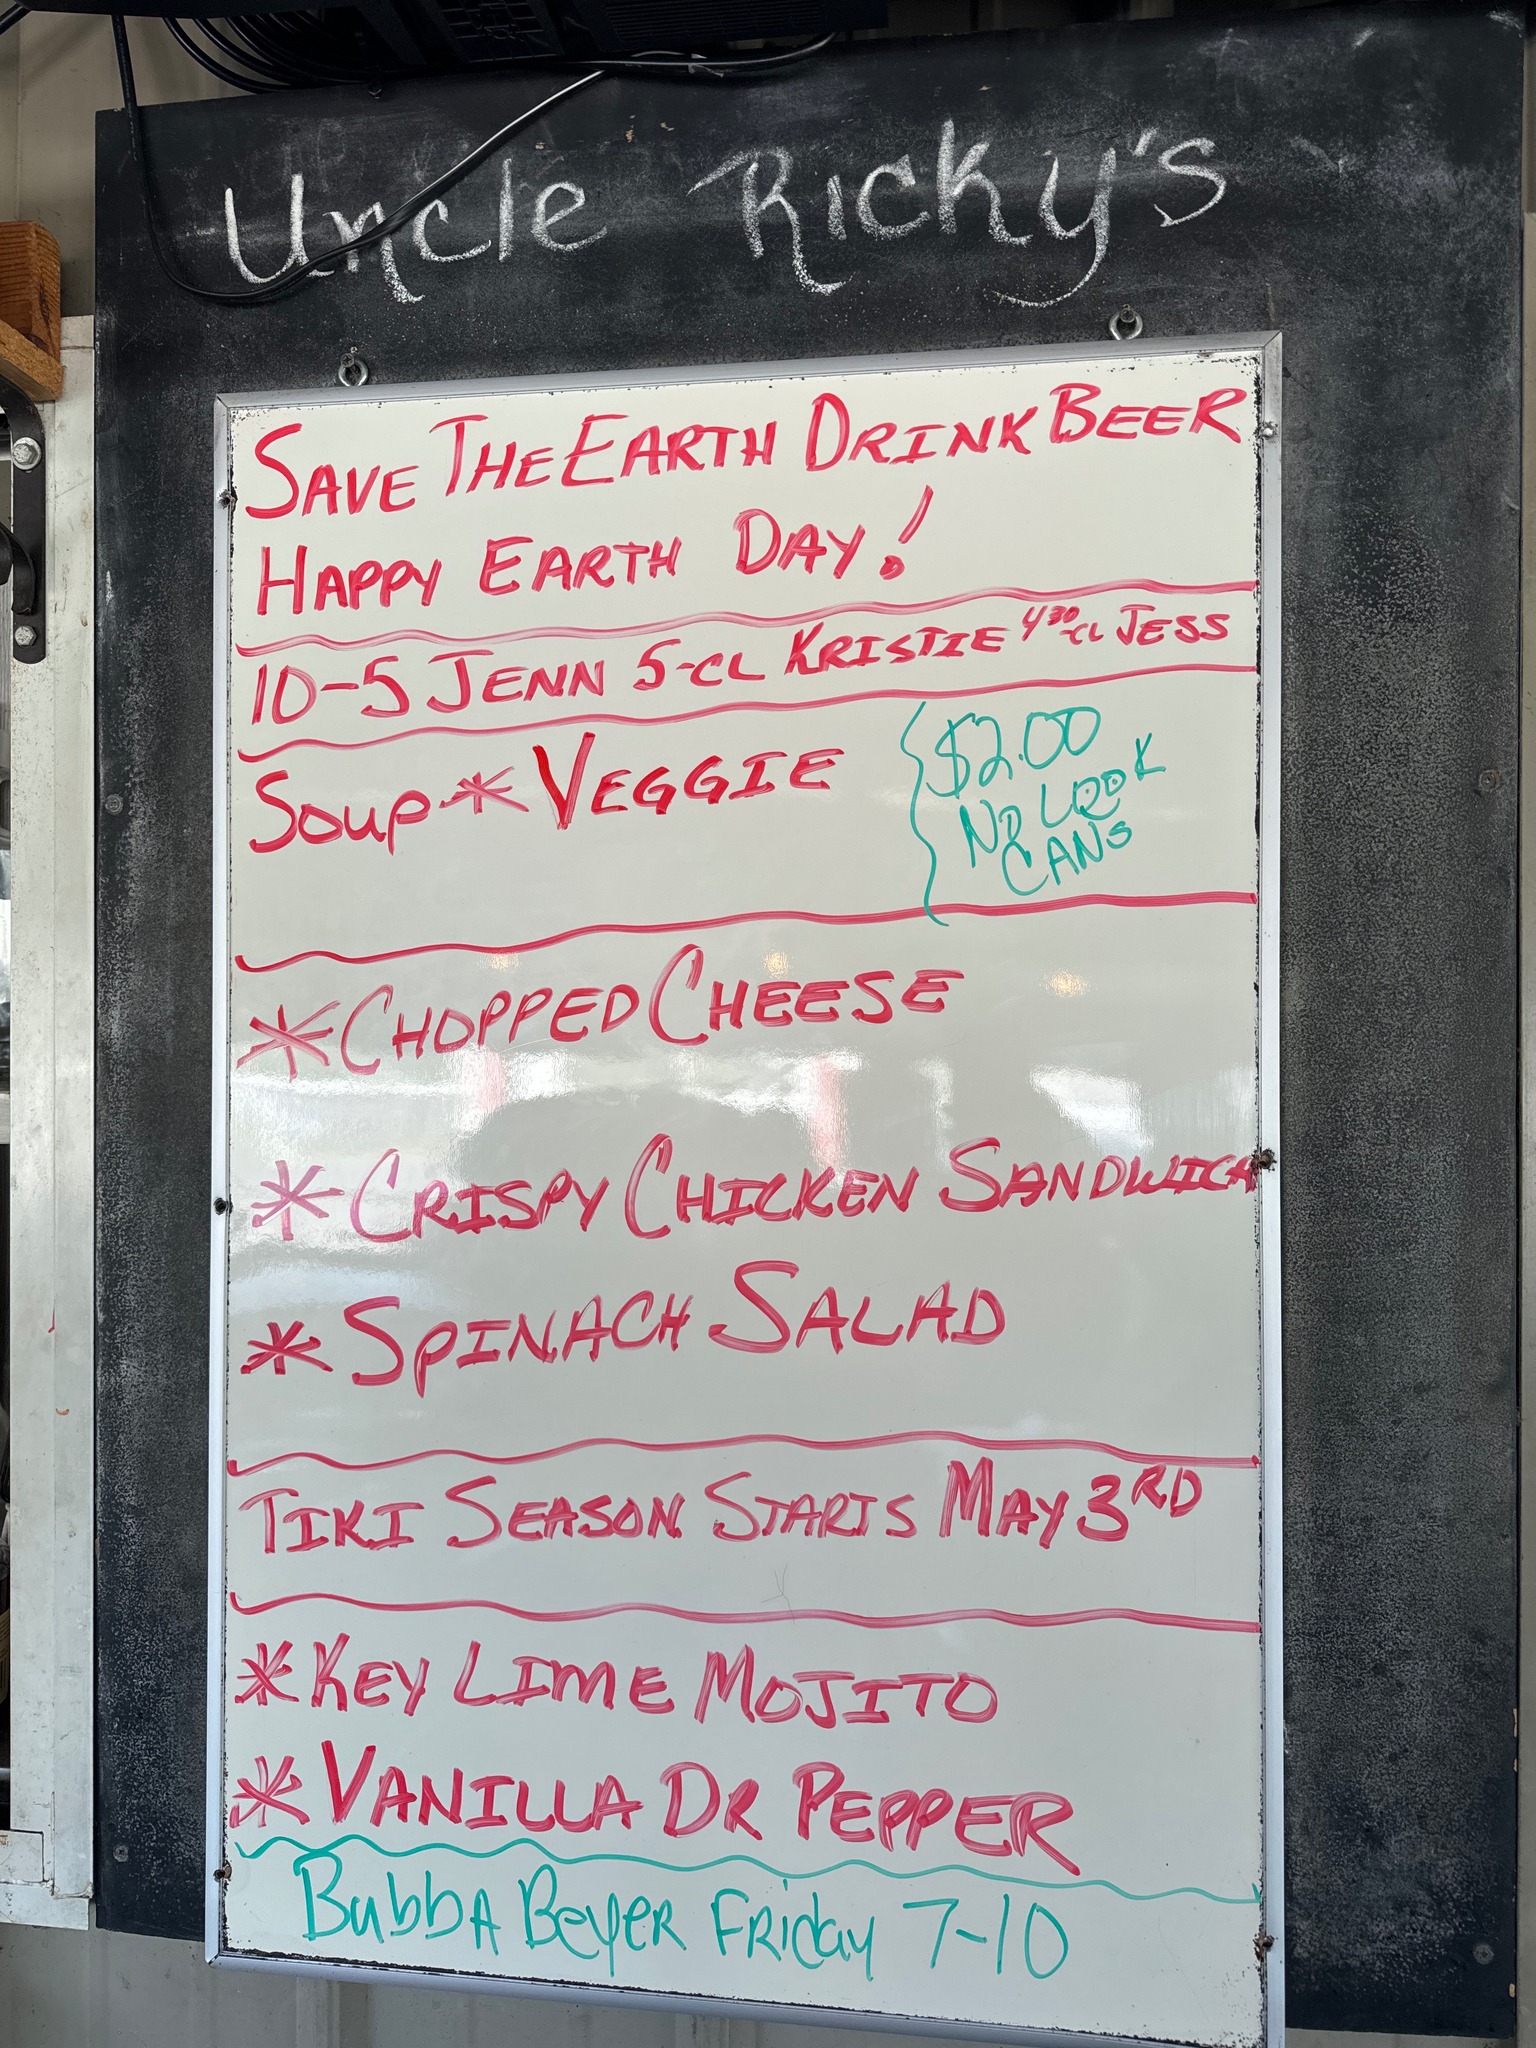 Uncle Ricky's
SAVE THE EARTH DRINK BEER
HAPPY EARTH DAY!
10-5 JENN 5-CL KRISTIE 4³⁰-CL JESS
Soup * VEGGIE
$2.00
NO LOOK
CANS
* CHOPPED CHEESE
* CRISPY CHICKEN SANDWICH
* SPINACH SALAD
TIKI SEASON STARTS MAY 3RD
* KEY LIME MOJITO
* VANILLA DR PEPPER
BubbA BeyeR FRiday 7-10